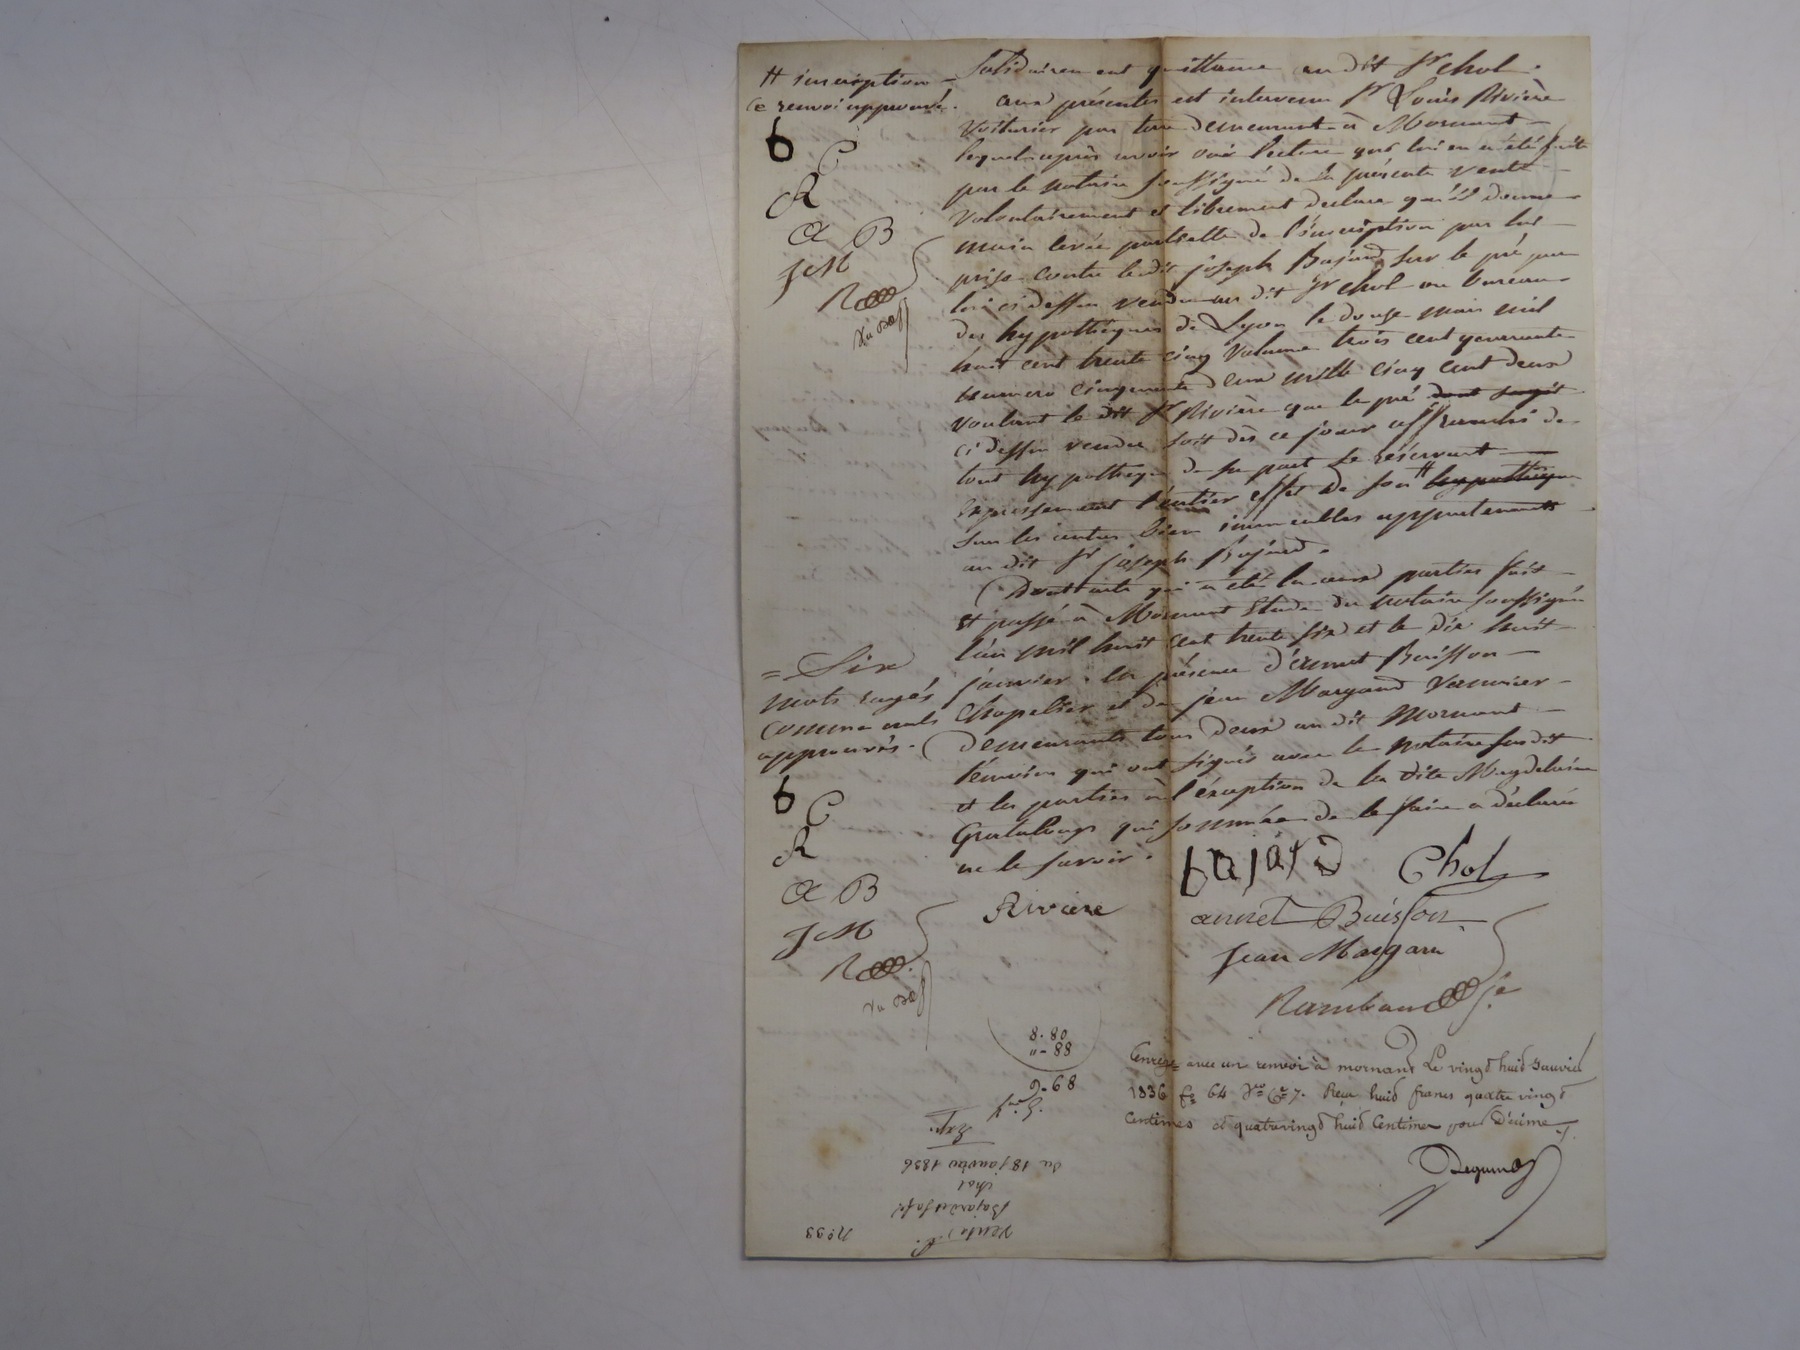 # inscription
ce renvoi approuvé.
b
C
R
a B
JM
R
solidairement quittance au dit Sr Chol.
aux présentes est intervenu Sr Louis Rivière
voiturier par terre demeurant à Mornant
lequel après avoir ouï lecture qui lui en a été faite
par le notaire soussigné de la présente vente
volontairement et librement declare qu'il donne
main levée partielle de l'inscription par lui
prise contre le dit joseph Bajard sur le pré par
lui ci dessus vendu au dit Sr Chol au bureau
des hypothèques de Lyon le douze mars mil
huit cent trente cinq volume trois cent quarante
numero cinquante deux mille cinq cent deux
voulant le dit Sr Rivière que le pré dont sagit
ci dessus vendu soit dès ce jour affranchi de
tout hypothèque de sa part se réservant
expressement l'entier effet de son # hypothèque
sur les autres biens immeubles appartenants
au dit Sr joseph Bajard.
Dont acte qui a été lu aux parties fait
et passé à Mornant Etude du notaire soussigné
l'an mil huit cent trente six et le dix huit
janvier. en présence d'annet Buisson
chapelier et de jean Margand vannier
demeurants tous deux au dit Mornant
témoins qui ont signés avec le notaire susdit
et les parties à l'éxception de la dite Magdelaine
Grataloup qui sommée de le faire a déclaré
ne le savoir.
= Six
mots rayés
comme nuls
approuvés.
b
C
R
a B
JM
R
bajard Chol
Rivière annet Buisson
Jean Margan
Rambaud
8.80
"-88
9-68
Enreg= avec un renvoi à mornant Le vingt huit Janvier
1836 fo 64 Vo Ce 7. Reçu huit francs quatre vingt
centimes et quatrevingt huit Centimes pour Décime
Deguin
Exp.
du 18 janvier 1836
Chol
Bajard et sa fe
Vente
No 33